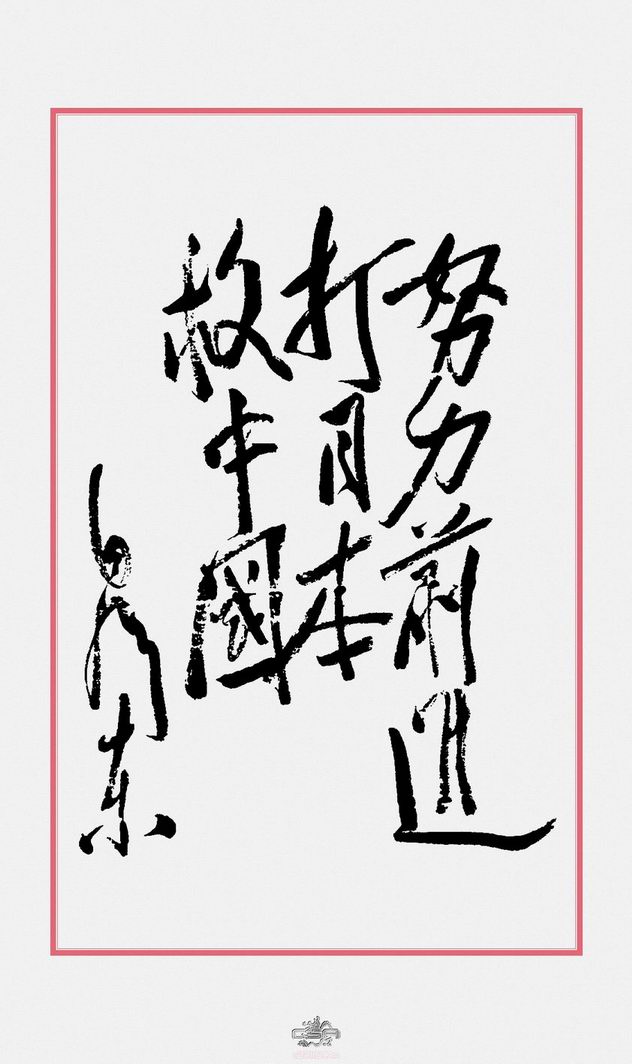 努力前進
打日本
救中國
毛澤东